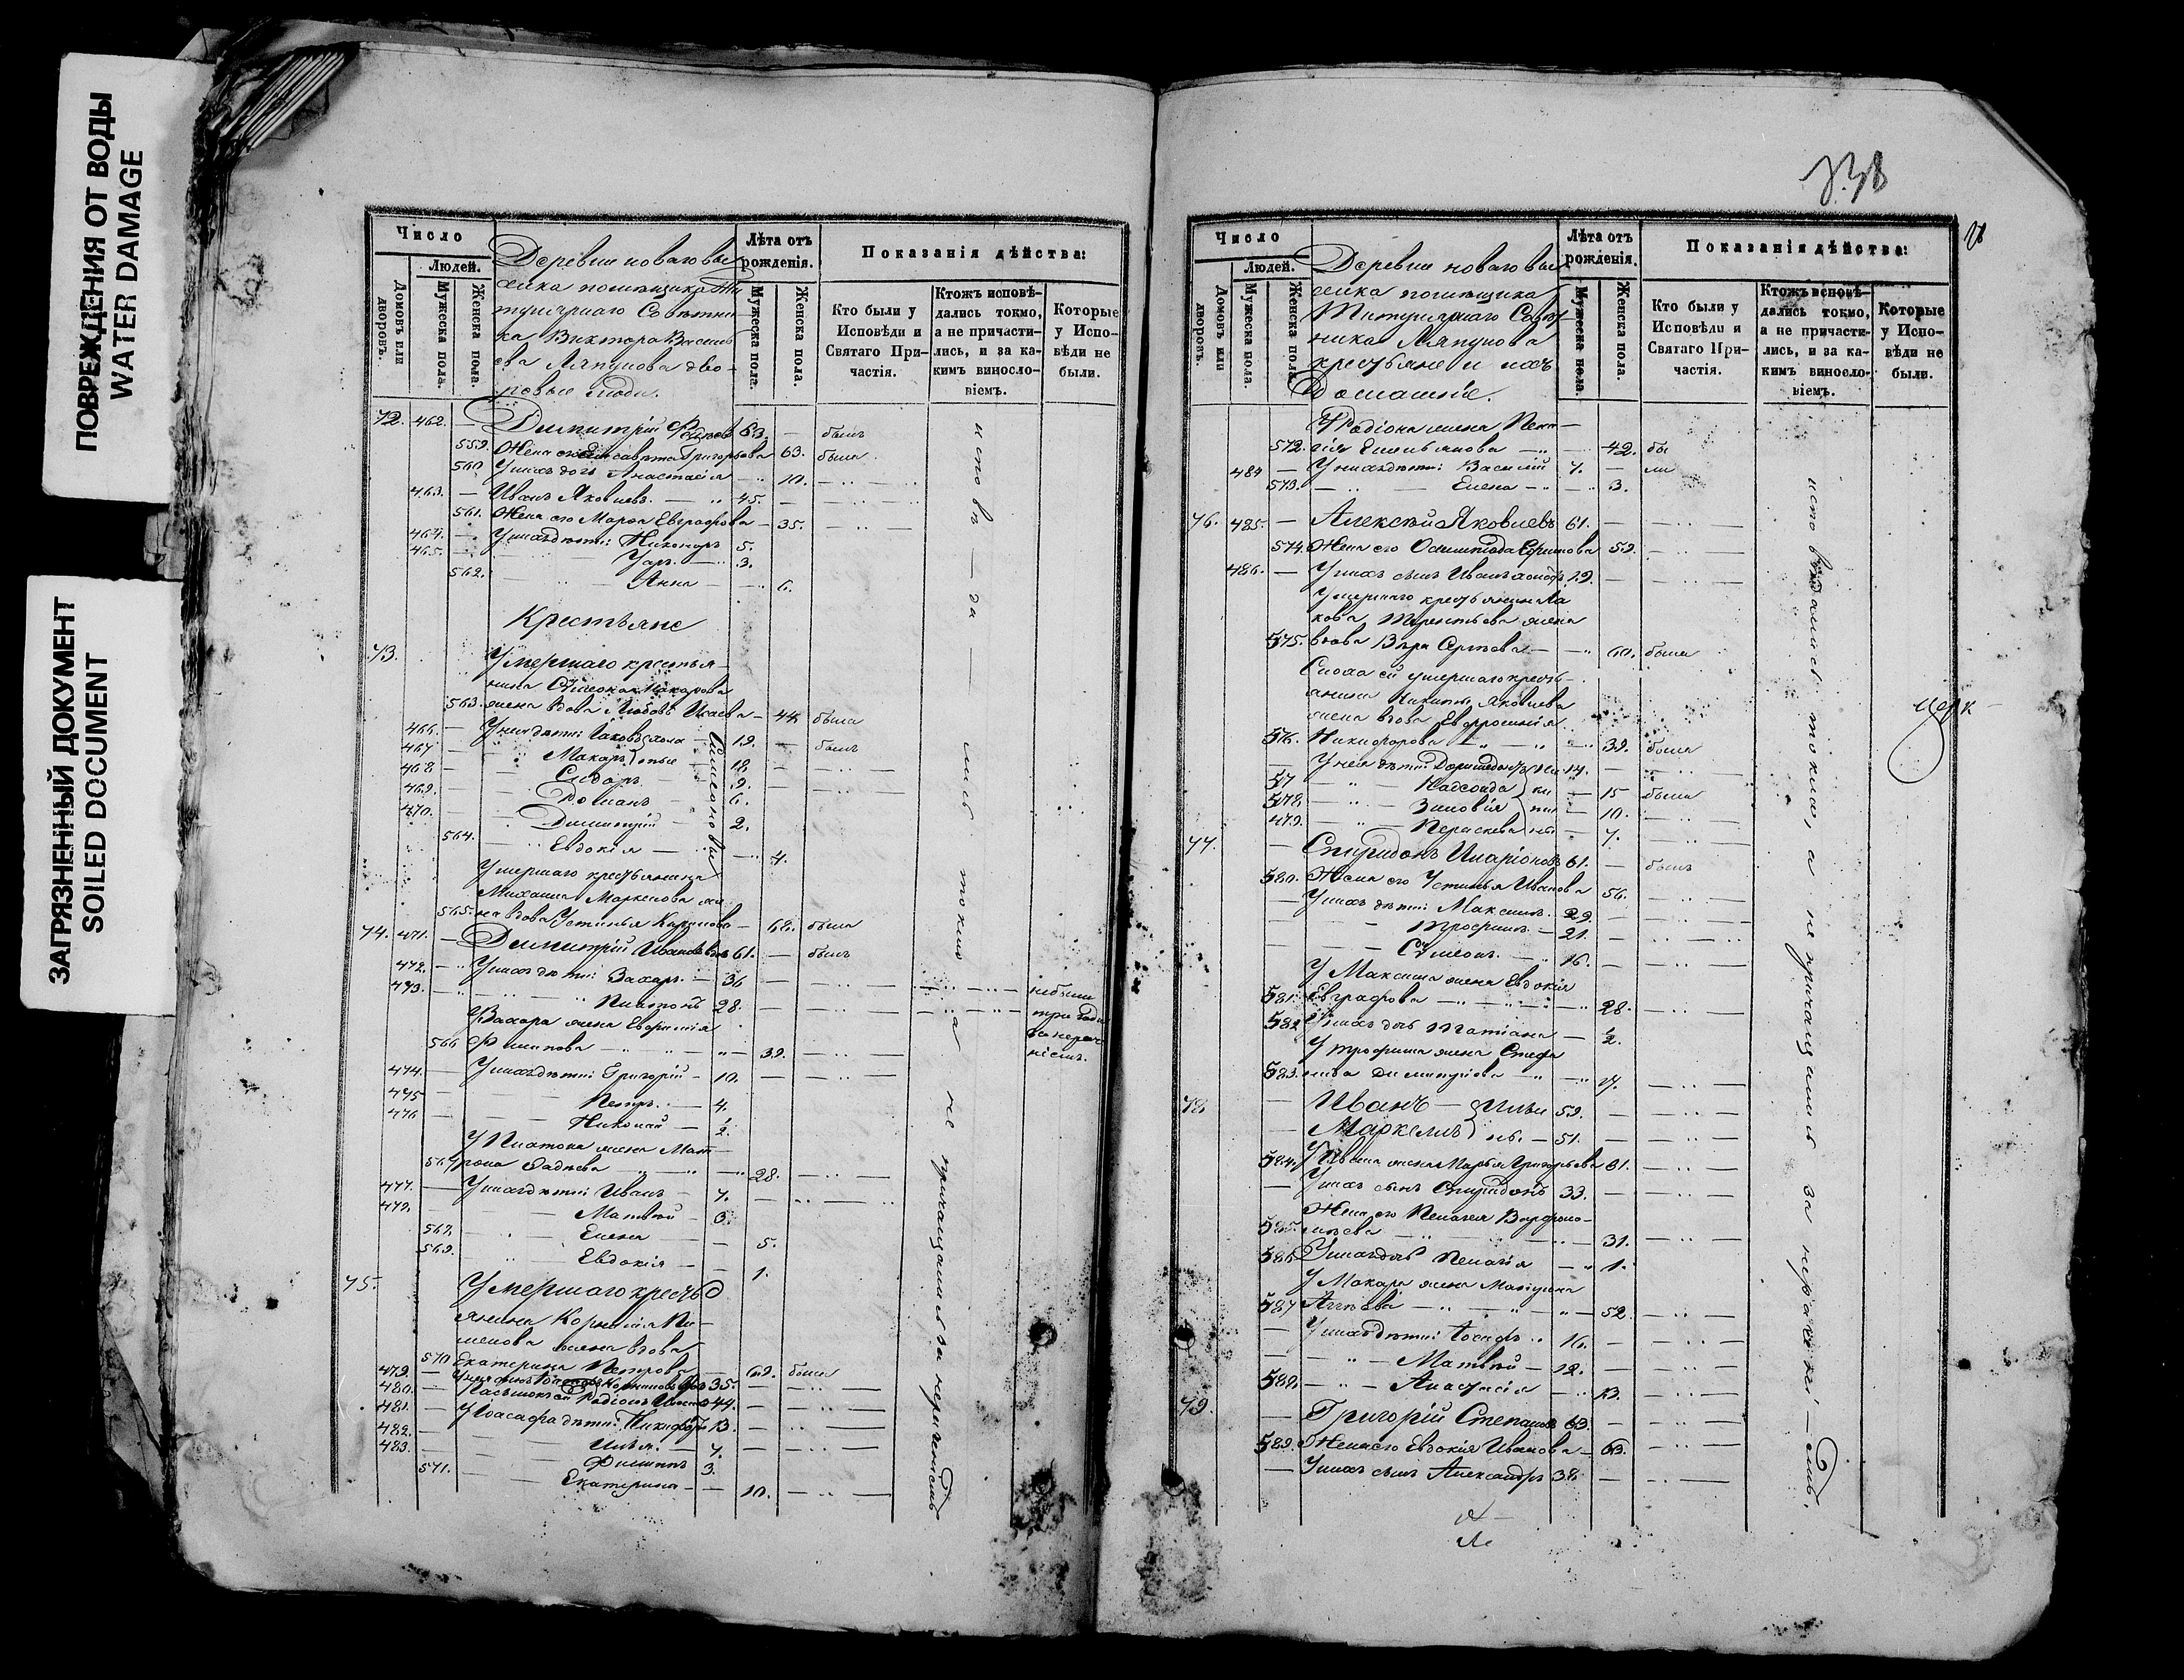 ПОВРЕЖДЕНИЯ ОТ ВОДЫ
WATER DAMAGE
ЗАГРЯЗНЕННЫЙ ДОКУМЕНТ
SOILED DOCUMENT
Число
Людей.
Домовъ или дворовъ.
Мужеска пола.
Женска пола.
Деревни новаго вы
селка помѣщика Ти
тулярнаго Совѣтни
ка Виктора Василь
ева Ляпунова дво-
ровые люди.
Лѣта отъ рожденія.
Мужеска пола.
Женска пола.
Показанія дѣйства:
Кто были у Исповѣди и Святаго Причастія.
Ктожъ исповѣдались токмо, а не причастились, и за какимъ винословіемъ.
Которые у Исповѣди не были.
72. 462. — Димитрій 63. — былъ
559. Жена его Елисавета Григорьева 63. была
560 У нихъ дочь Анастасія 10.
463. — Иванъ Яковлевъ. 45.
561. Жена его Марѳа Евграфова — 35.
464. — У нихъ дѣти: Никаноръ 5.
465. — 3.
562. Анна 6.
Крестьяне
73. Умершаго крестья-
нина Симеона Макарова
563. жена вдова Любовь Исаева — 44 была
466. У нея дѣти: Іаковъ холо 19. — былъ
467 Макаръ стые 18.
468 Сидоръ 9.
469. Романъ 6.
470. Димитрій 2.
Симеоновы
564. Евдокія 4.
Умершаго крестьянина
Михаила Маркелова же
565. на вдова Устинья Карпова 68. была
74. 471. — Димитрій Ивановъ 61. — былъ
472. У нихъ дѣти: Захаръ. 36
473. Платонъ 28.
небыли
три года
за нерач
ніемъ.
У Захара жена Евфимія
566 Филипова 39.
474. У нихъ дѣти: Григорій — 10.
475 Петръ. 4.
476 Николай — 1/2.
У Платона жена Мат
567 рона Фадѣева 28.
477. У нихъ дѣти: Иванъ — 7.
478. Матвѣй — 3.
568. Елена 5.
569. Евдокія 1.
75. Умершаго кресть
янина Корнилія Пи
менова жена вдова
570 Екатерина Петрова 69. была
479. 35.
480. Родіонъ 44.
481. У Іоасафа дѣти: Никифоръ 13.
482. Илья. 7.
483. Филиппъ 3.
571. Екатерина 10.
исповѣдались токмо а не причащались за нерачениемъ
738
Число
Людей.
Домовъ или дворовъ.
Мужеска пола.
Женска пола.
Деревни новаго вы
селка помѣщика
Титулярнаго Совѣт
ника Ляпунова
крестьяне и ихъ
домашніе.
Лѣта отъ рожденія.
Мужеска пола.
Женска пола.
Показанія дѣйства:
Кто были у Исповѣди и Святаго Причастія.
Ктожъ исповѣдались токмо, а не причастились, и за какимъ винословіемъ.
Которые у Исповѣди не были.
У Родіона жена Пела —
572. гія Емельянова 42. бы
484 — У нихъ дѣти: Василій 7. — ли
573. Елена 3.
76. 485. — Алексѣй Яковлевъ 61.
574. Жена его Олимпіада Ефимова 59.
486. — У нихъ сынъ Иванъ холостъ 19.
Умершаго крестьянина Іа
кова Терентьева жена
575. вдова Вѣра Сергѣева — 60. была
Сноха ей умершаго кресть-
янина Никиты Яковлева
жена вдова Евфросинія
576. Никифорова 39. была
У нея дѣти: 14.
57 15 была
578 Зиновія 10.
479. Параскева 7.
77. — Спиридонъ Иларіоновъ 61. — былъ
580. Жена его Устинья Иванова 56.
У нихъ дѣти: Максимъ. 29.
Трофимъ. 21.
Симеонъ. 16.
У Максима жена Евдокія
581. Евграфова 28.
582 У нихъ дочь Татіана 1/2.
У Трофима жена Стефа
583. нида Димитріева
78 — Иванъ — Ильи 59.
— Маркеллъ ны. 51.
584. У Ивана жена Марья Григорьева 61.
— У нихъ сынъ Спиридонъ 33.
Жена его Пелагея Варфоло-
585. мѣева 31.
586 У нихъ дочь Пелагія 1.
У Макара жена Матрона
587 52
У нихъ дѣти: Іосифъ 16.
Матвѣй — 12.
588. Анастасія 13.
79. — Григорій Степановъ 63.
589. Жена его Евдокія Иванова 63.
— У нихъ сынъ Александръ 38
исповѣдались токмо, а не причащались за нерачені—емъ.
церк